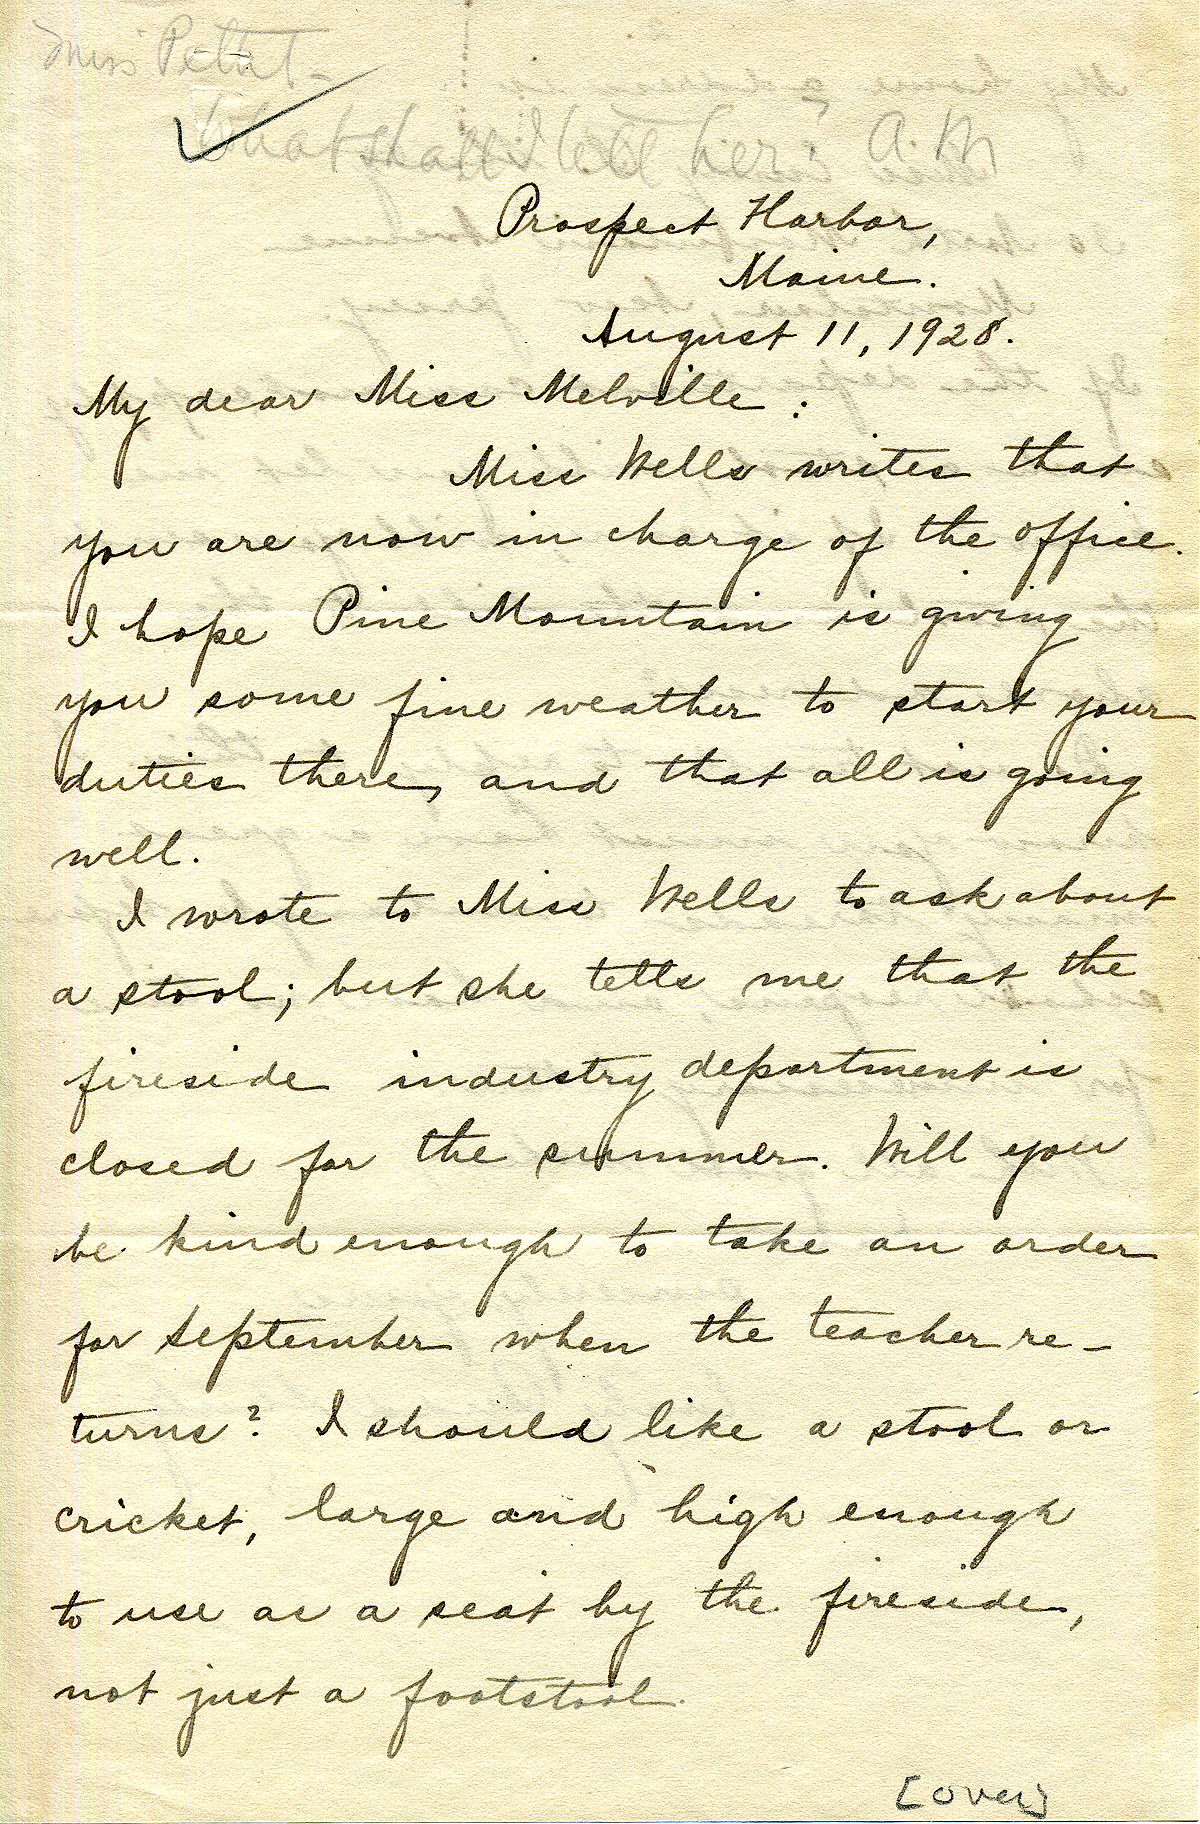 Miss Pettit -
What shall I tell her? A. M
Prospect Harbor,
Maine.
August 11, 1928.
My dear Miss Melville:
Miss Wells writes that
you are now in charge of the office.
I hope Pine Mountain is giving
you some fine weather to start your
duties there, and that all is going
well.
I wrote to Miss Wells to ask about
a stool; but she tells me that the
fireside industry department is
closed for the summer. Will you
be kind enough to take an order
for September when the teacher re-
turns? I should like a stool or
cricket, large and high enough
to use as a seat by the fireside,
not just a footstool.
[over]